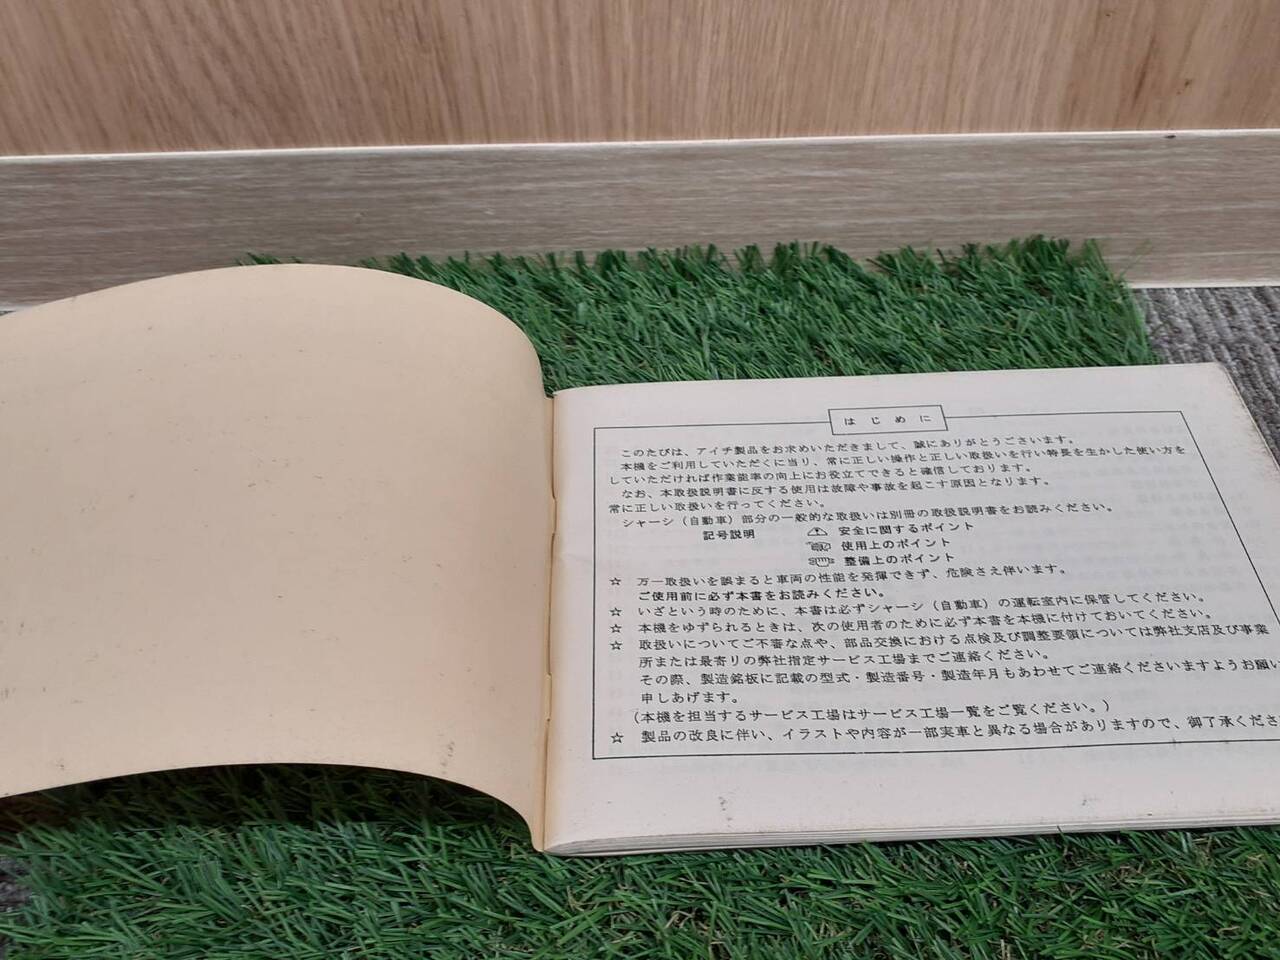 はじめに
このたびは、アイチ製品をお求めいただきまして、誠にありがとうございます。
本機をご利用していただくに当り、常に正しい操作と正しい取扱いを行い特長を生かした使い方を
していただければ作業能率の向上にお役立てできると確信しております。
なお、本取扱説明書に反する使用は故障や事故を起こす原因となります。
常に正しい取扱いを行ってください。
シャーシ（自動車）部分の一般的な取扱いは別冊の取扱説明書をお読みください。
記号説明 安全に関するポイント
使用上のポイント
整備上のポイント
☆ 万一取扱いを誤まると車両の性能を発揮できず、危険さえ伴います。
ご使用前に必ず本書をお読みください。
☆ いざという時のために、本書は必ずシャーシ（自動車）の運転室内に保管してください。
☆ 本機をゆずられるときは、次の使用者のために必ず本書を本機に付けておいてください。
☆ 取扱いについてご不審な点や、部品交換における点検及び調整要領については弊社支店及び事業
所または最寄りの弊社指定サービス工場までご連絡ください。
その際、製造銘板に記載の型式・製造番号・製造年月もあわせてご連絡くださいますようお願い
申しあげます。
（本機を担当するサービス工場はサービス工場一覧をご覧ください。）
☆ 製品の改良に伴い、イラストや内容が一部実車と異なる場合がありますので、御了承くださ